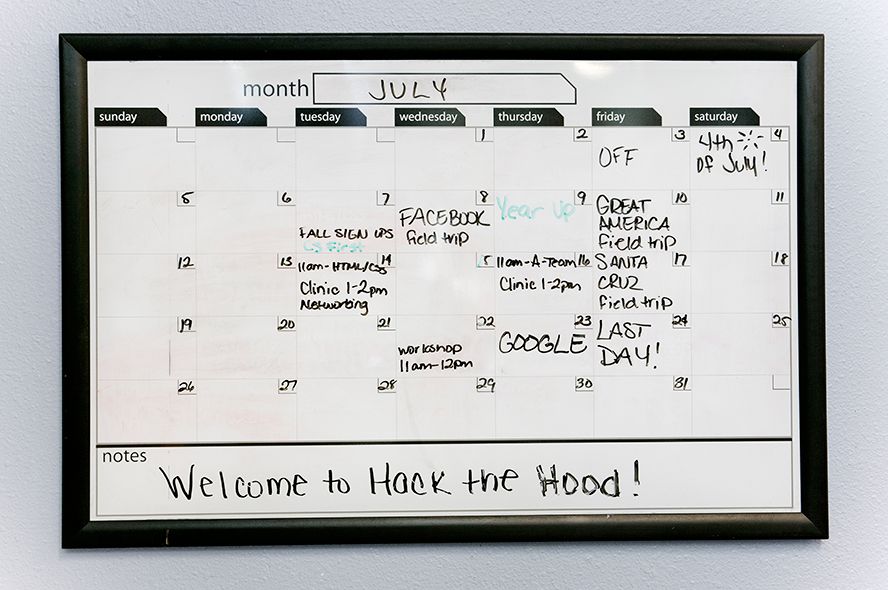 month JULY
sunday monday tuesday wednesday thursday friday saturday
1 2 3 4
OFF
4th
of July!
5 6 7 8 9 10 11
FALL SIGN UPS
CS First
FACEBOOK
field trip
Year Up
GREAT
AMERICA
field trip
12 13 14 15 16 17 18
11am-HTML/CSS
Clinic 1-2pm
Networking
11am-A-Team
Clinic 1-2pm
SANTA
CRUZ
field trip
19 20 21 22 23 24 25
workshop
11am-12pm
GOOGLE
LAST
DAY!
26 27 28 29 30 31
notes
Welcome to Hack the Hood!